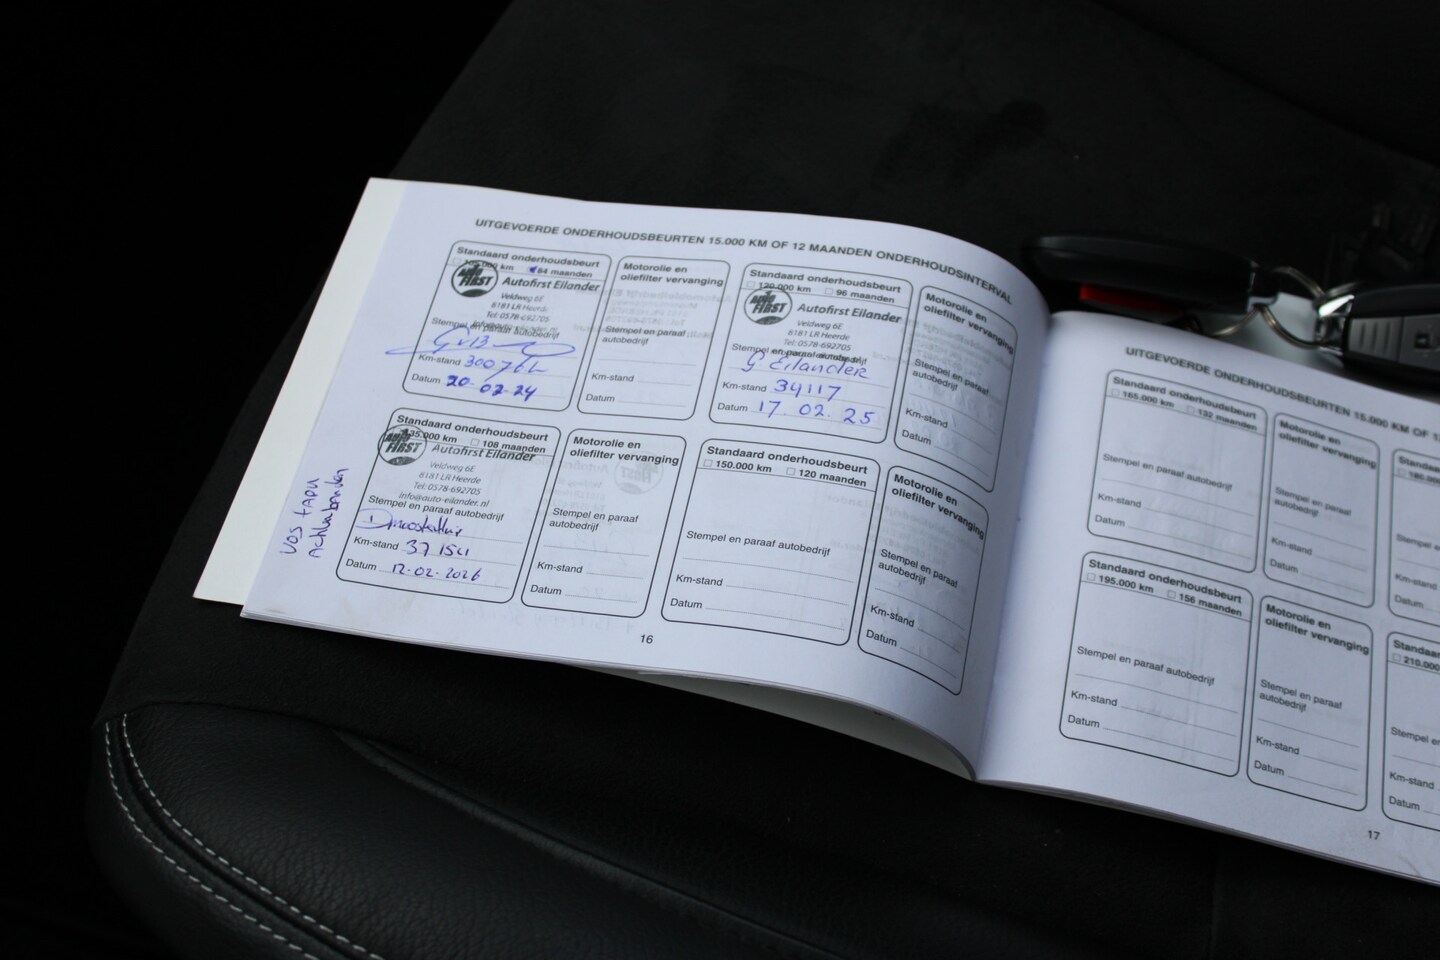 UITGEVOERDE ONDERHOUDSBEURTEN 15.000 KM OF 12 MAANDEN ONDERHOUDSINTERVAL
Standaard onderhoudsbeurt
km 84 maanden
AUTO FIRST
Autofirst Eilander
Veldweg 6E
8181 LR Heerde
Tel: 0578-692705
Stempel en paraaf autobedrijf
Km-stand
Datum 20-02-24
Motorolie en
oliefilter vervanging
Stempel en paraaf
autobedrijf
Km-stand
Datum
Standaard onderhoudsbeurt
120.000 km 96 maanden
AUTO FIRST
Autofirst Eilander
Veldweg 6E
8181 LR Heerde
Tel: 0578-692705
Stempel en paraaf autobedrijf
G Eilander
Km-stand 34117
Datum 17.02.25
Motorolie en
oliefilter vervanging
Stempel en paraaf
autobedrijf
Km-stand
Datum
Standaard onderhoudsbeurt
135.000 km 108 maanden
AUTO FIRST
Autofirst Eilander
Veldweg 6E
8181 LR Heerde
Tel: 0578-692705
info@auto-eilander.nl
Stempel en paraaf autobedrijf
Km-stand
Datum 12-02-2026
Motorolie en
oliefilter vervanging
Stempel en paraaf
autobedrijf
Km-stand
Datum
Standaard onderhoudsbeurt
150.000 km 120 maanden
Stempel en paraaf autobedrijf
Km-stand
Datum
Motorolie en
oliefilter vervanging
Stempel en paraaf
autobedrijf
Km-stand
Datum
16
UITGEVOERDE ONDERHOUDSBEURTEN 15.000 KM OF
Standaard onderhoudsbeurt
165.000 km 132 maanden
Stempel en paraaf autobedrijf
Km-stand
Datum
Motorolie en
oliefilter vervanging
Stempel en paraaf
autobedrijf
Km-stand
Datum
Standaa
180.000
Stempel en
Km-stand
Datum
Standaard onderhoudsbeurt
195.000 km 156 maanden
Stempel en paraaf autobedrijf
Km-stand
Datum
Motorolie en
oliefilter vervanging
Stempel en paraaf
autobedrijf
Km-stand
Datum
Standaa
210.000
Stempel en
Km-stand
Datum
17